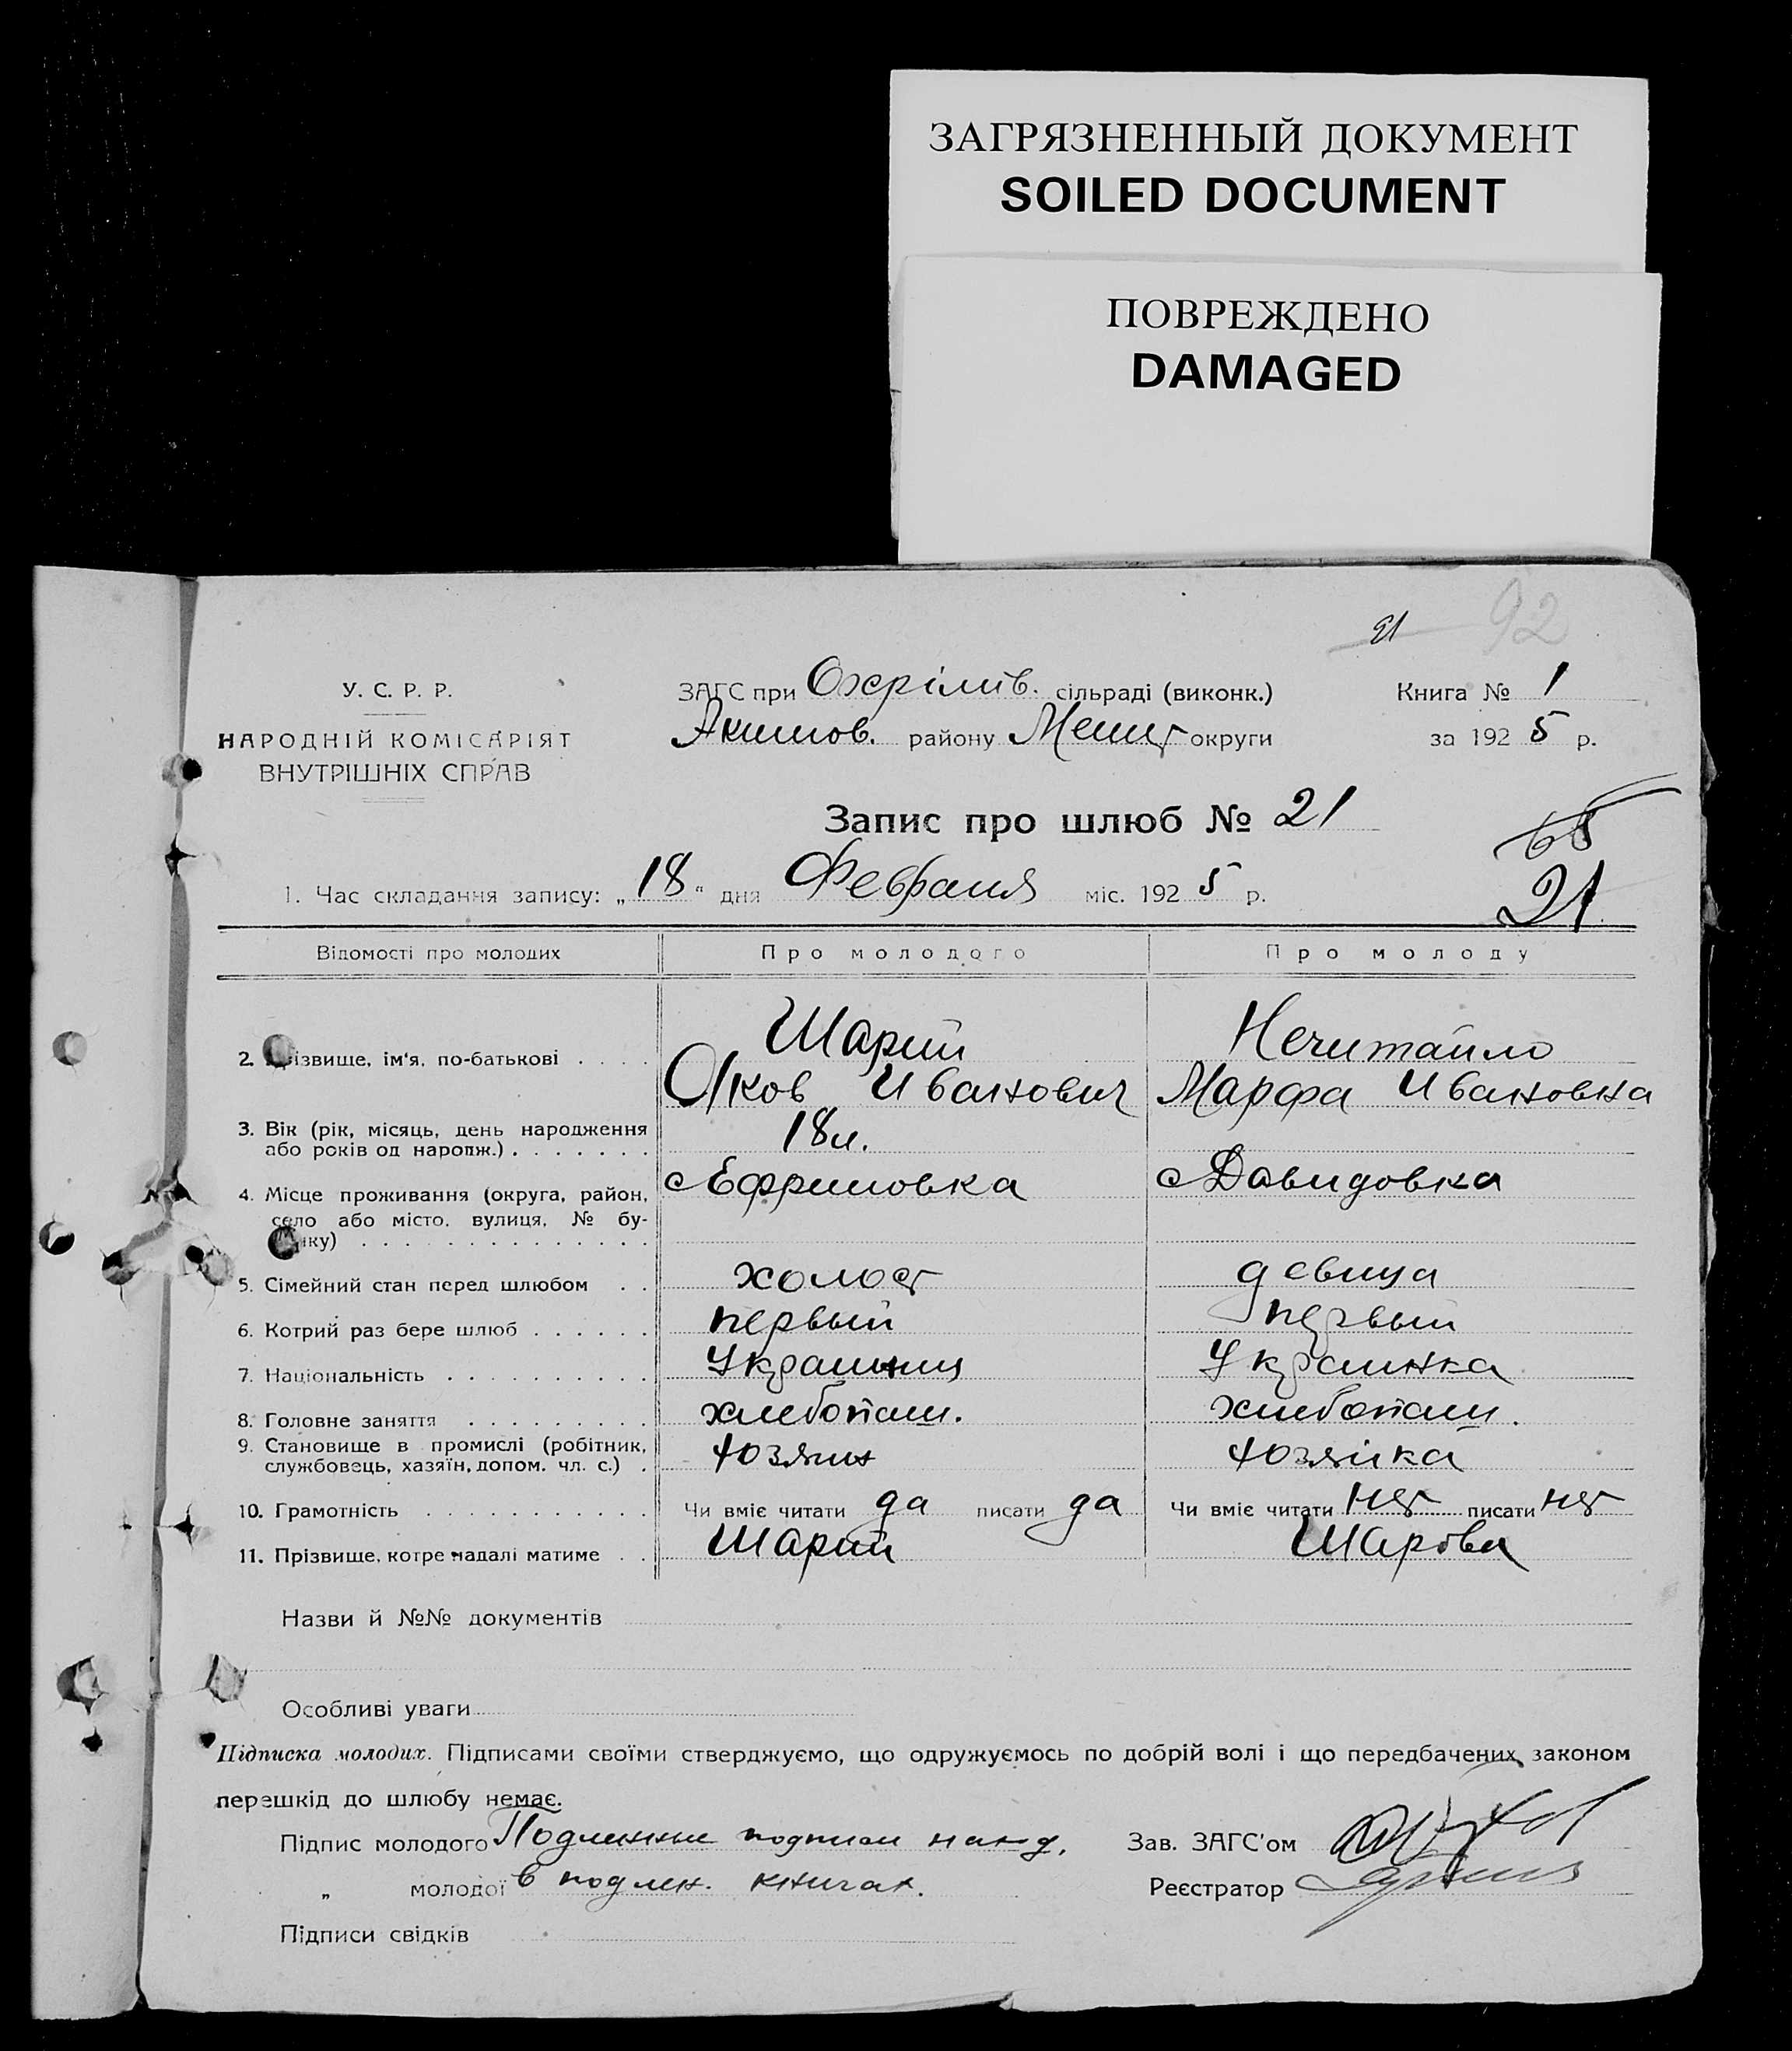 ЗАГРЯЗНЕННЫЙ ДОКУМЕНТ
SOILED DOCUMENT
ПОВРЕЖДЕНО
DAMAGED
21 92
У. С. Р. Р.
НАРОДНІЙ КОМІСАРІЯТ
ВНУТРІШНІХ СПРАВ
ЗАГС при Охрімів. сільраді (виконк.)
Акимов. району Мелит округи
Книга № 1
за 1925 р.
Запис про шлюб № 21
65
21
1. Час складання запису: „18“ дня Февраля міс. 1925 р.
Відомості про молодих Про молодого Про молоду
2. Прізвище, ім'я, по-батькові . . . . Шарий Нечитайло
Яков Иванович Марфа Ивановна
3. Вік (рік, місяць, день народження
або років од народж.) . . . . . . . 18 л.
4. Місце проживання (округа, район,
село або місто, вулиця, № бу-
динку) . . . . . . . . . . . . . .
с Ефримовка с Давидовка
5. Сімейний стан перед шлюбом . . холост девица
6. Котрий раз бере шлюб . . . . . . первый первый
7. Національність . . . . . . . . . . Украинец Украинка
8. Головне заняття . . . . . . . . . хлебопаш. хлебопаш.
9. Становище в промислі (робітник,
службовець, хазяїн, допом. чл. с.) . хозяин хозяйка
10. Грамотність . . . . . . . . . . . Чи вміє читати да писати да Чи вміє читати нет писати нет
11. Прізвище, котре надалі матиме . . Шарий Шарова
Назви й №№ документів
Особливі уваги
Підписка молодих. Підписами своїми стверджуємо, що одружуємось по добрій волі і що передбачених законом
перешкід до шлюбу немає.
Підпис молодого Подлинные подписи наход. Зав. ЗАГС'ом
„ молодої в подлен. книгах. Реєстратор
Підписи свідків